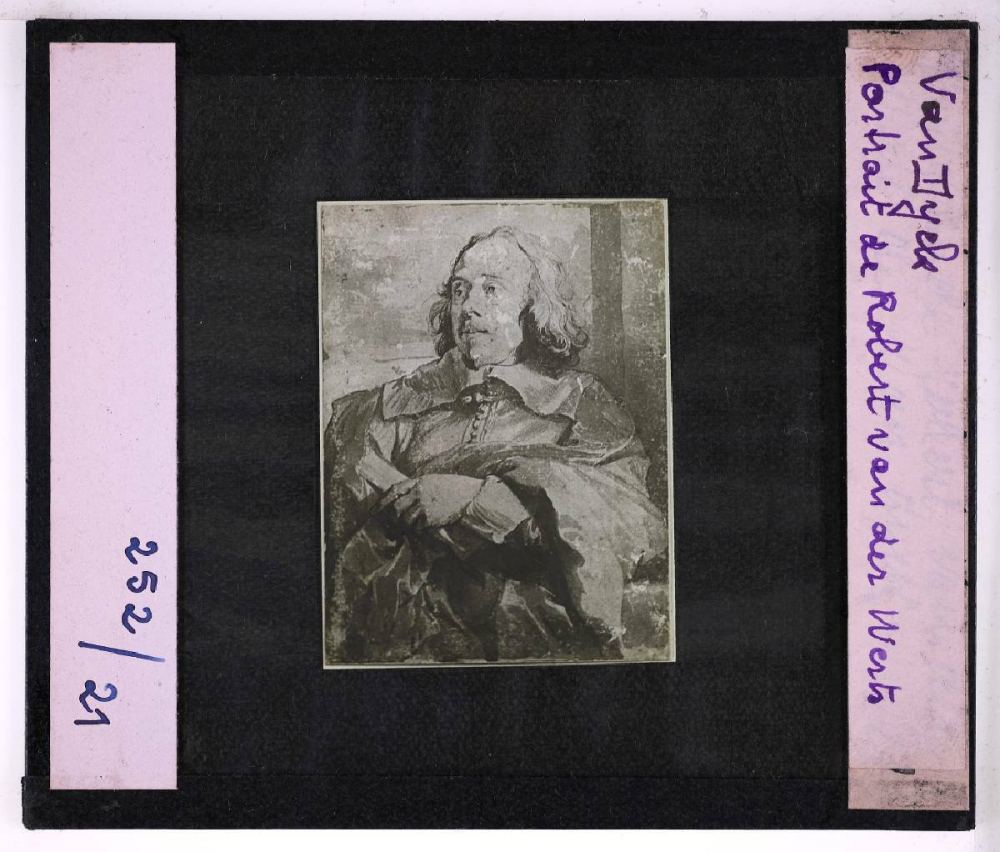 Van Dyck
Portrait de Robert van der Werts
252/21